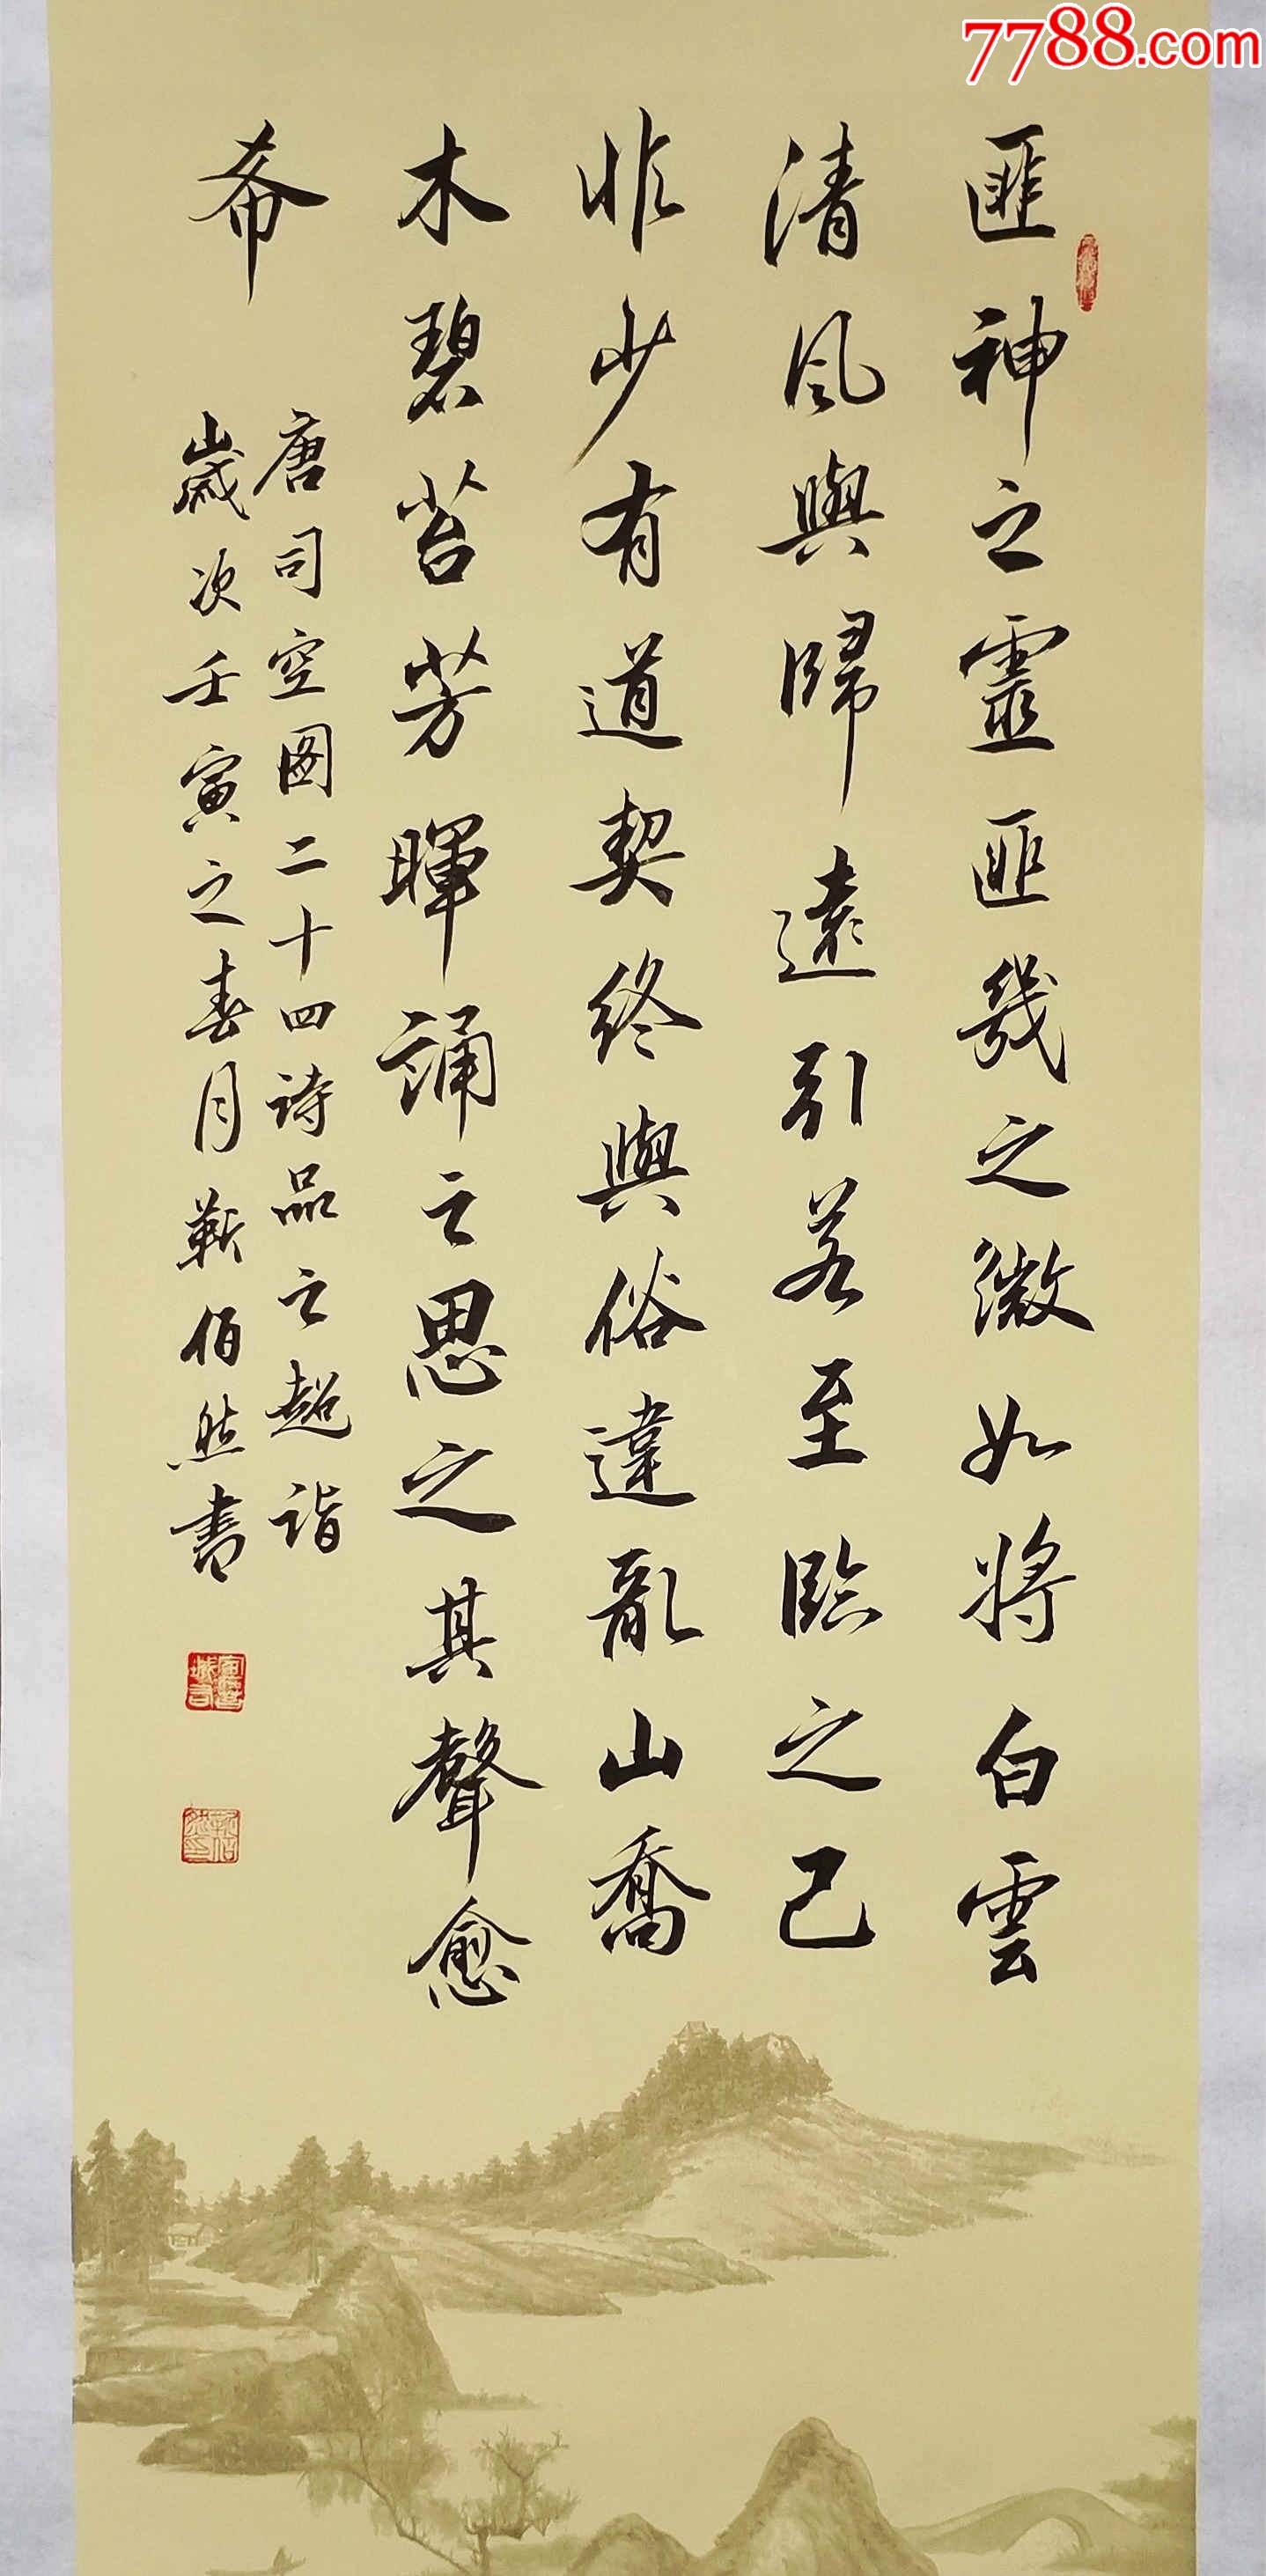 7788.com
匪神之靈匪幾之微如將白雲
清風與歸遠引若至臨之已
非少有道契終與俗違亂山喬
木碧苔芳暉誦之思之其聲愈
希
唐司空图二十四诗品之超诣
歲次壬寅之春月靳佰然書